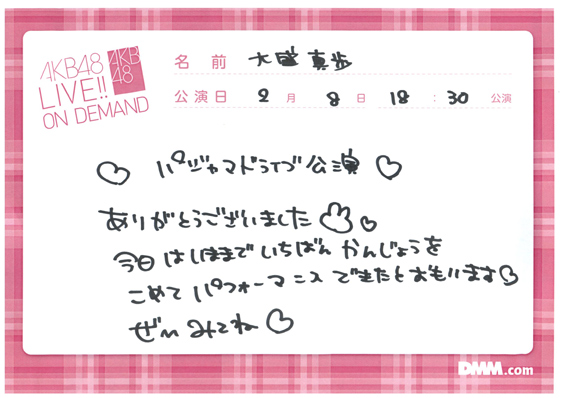 AKB48
LIVE!!
ON DEMAND
AKB
48
名前 大盛真歩
公演日 2月8日 18:30 公演
♡ パジャマドライブ公演 ♡
ありがとうございました ♡
今日はいままでいちばん かんじょうを
こめて パフォーマンス できたとおもいます♡
ぜひ みてね ♡
DMM.com